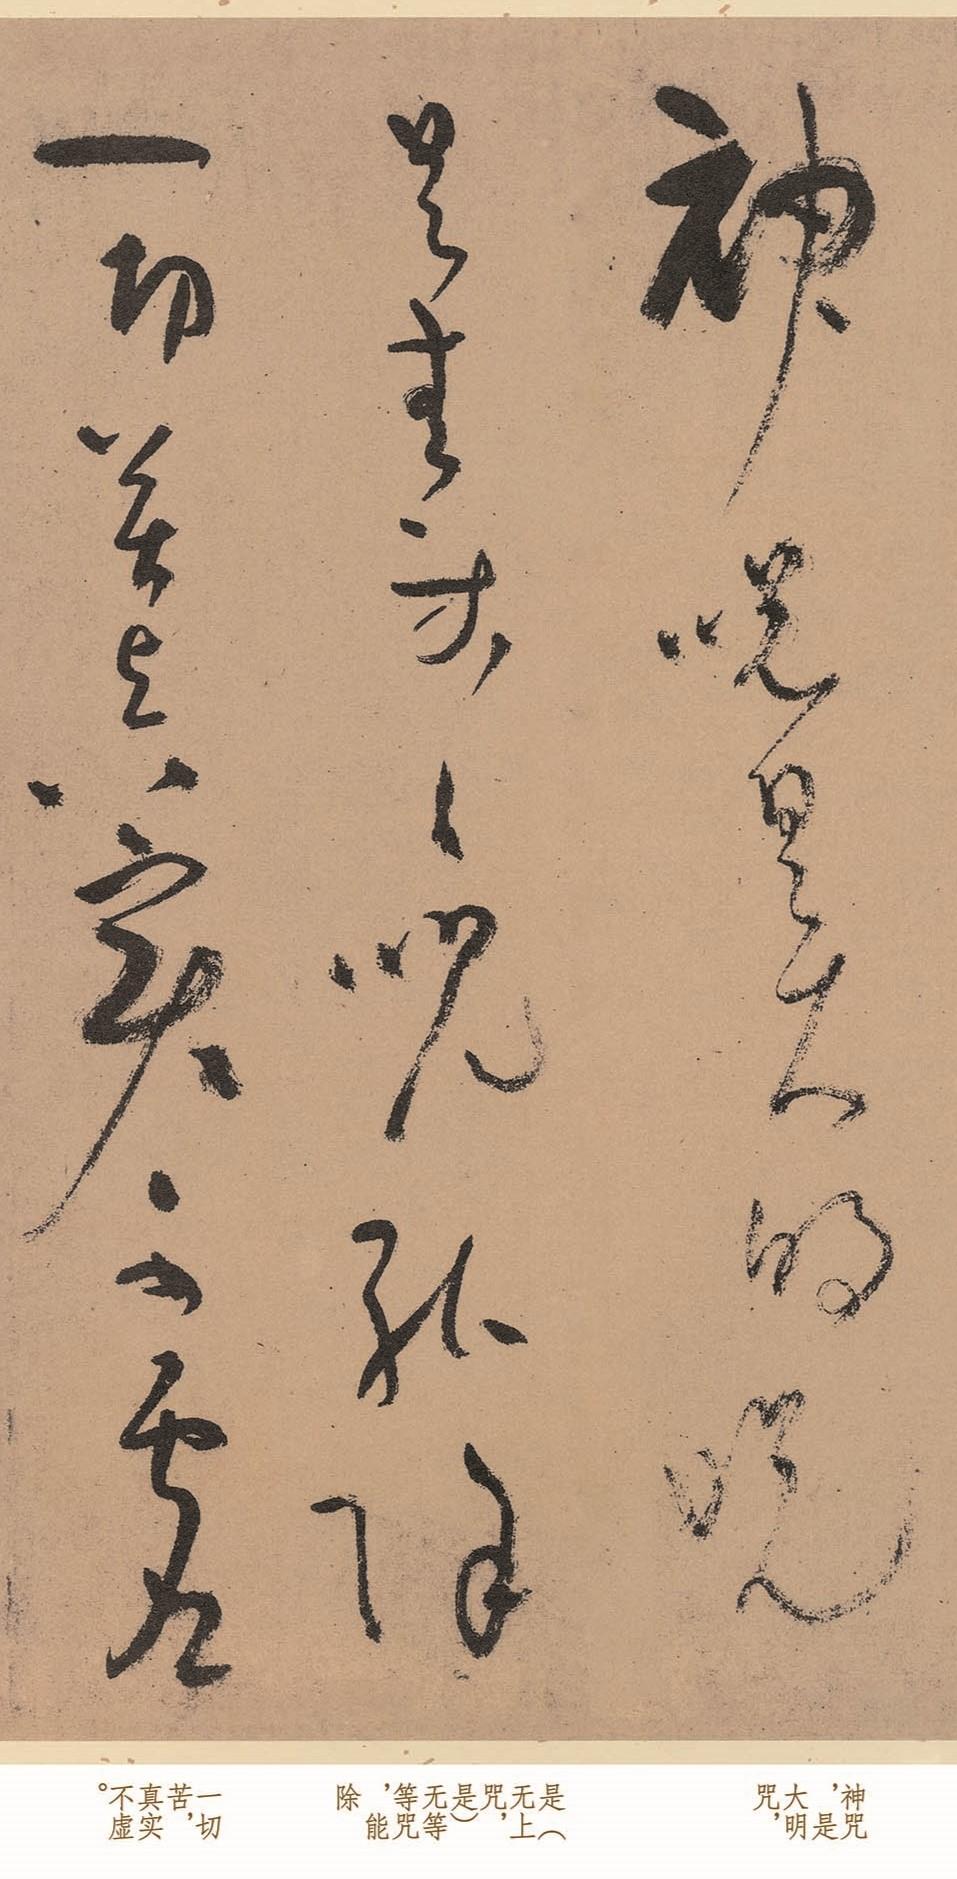 神咒是大明咒
是無等々咒能除
一切苦真實不虛
神咒
，是
大明
咒，
是（
无上
咒，
是）
无等
等咒
，能
除
一切
苦，
真实
不虚
。